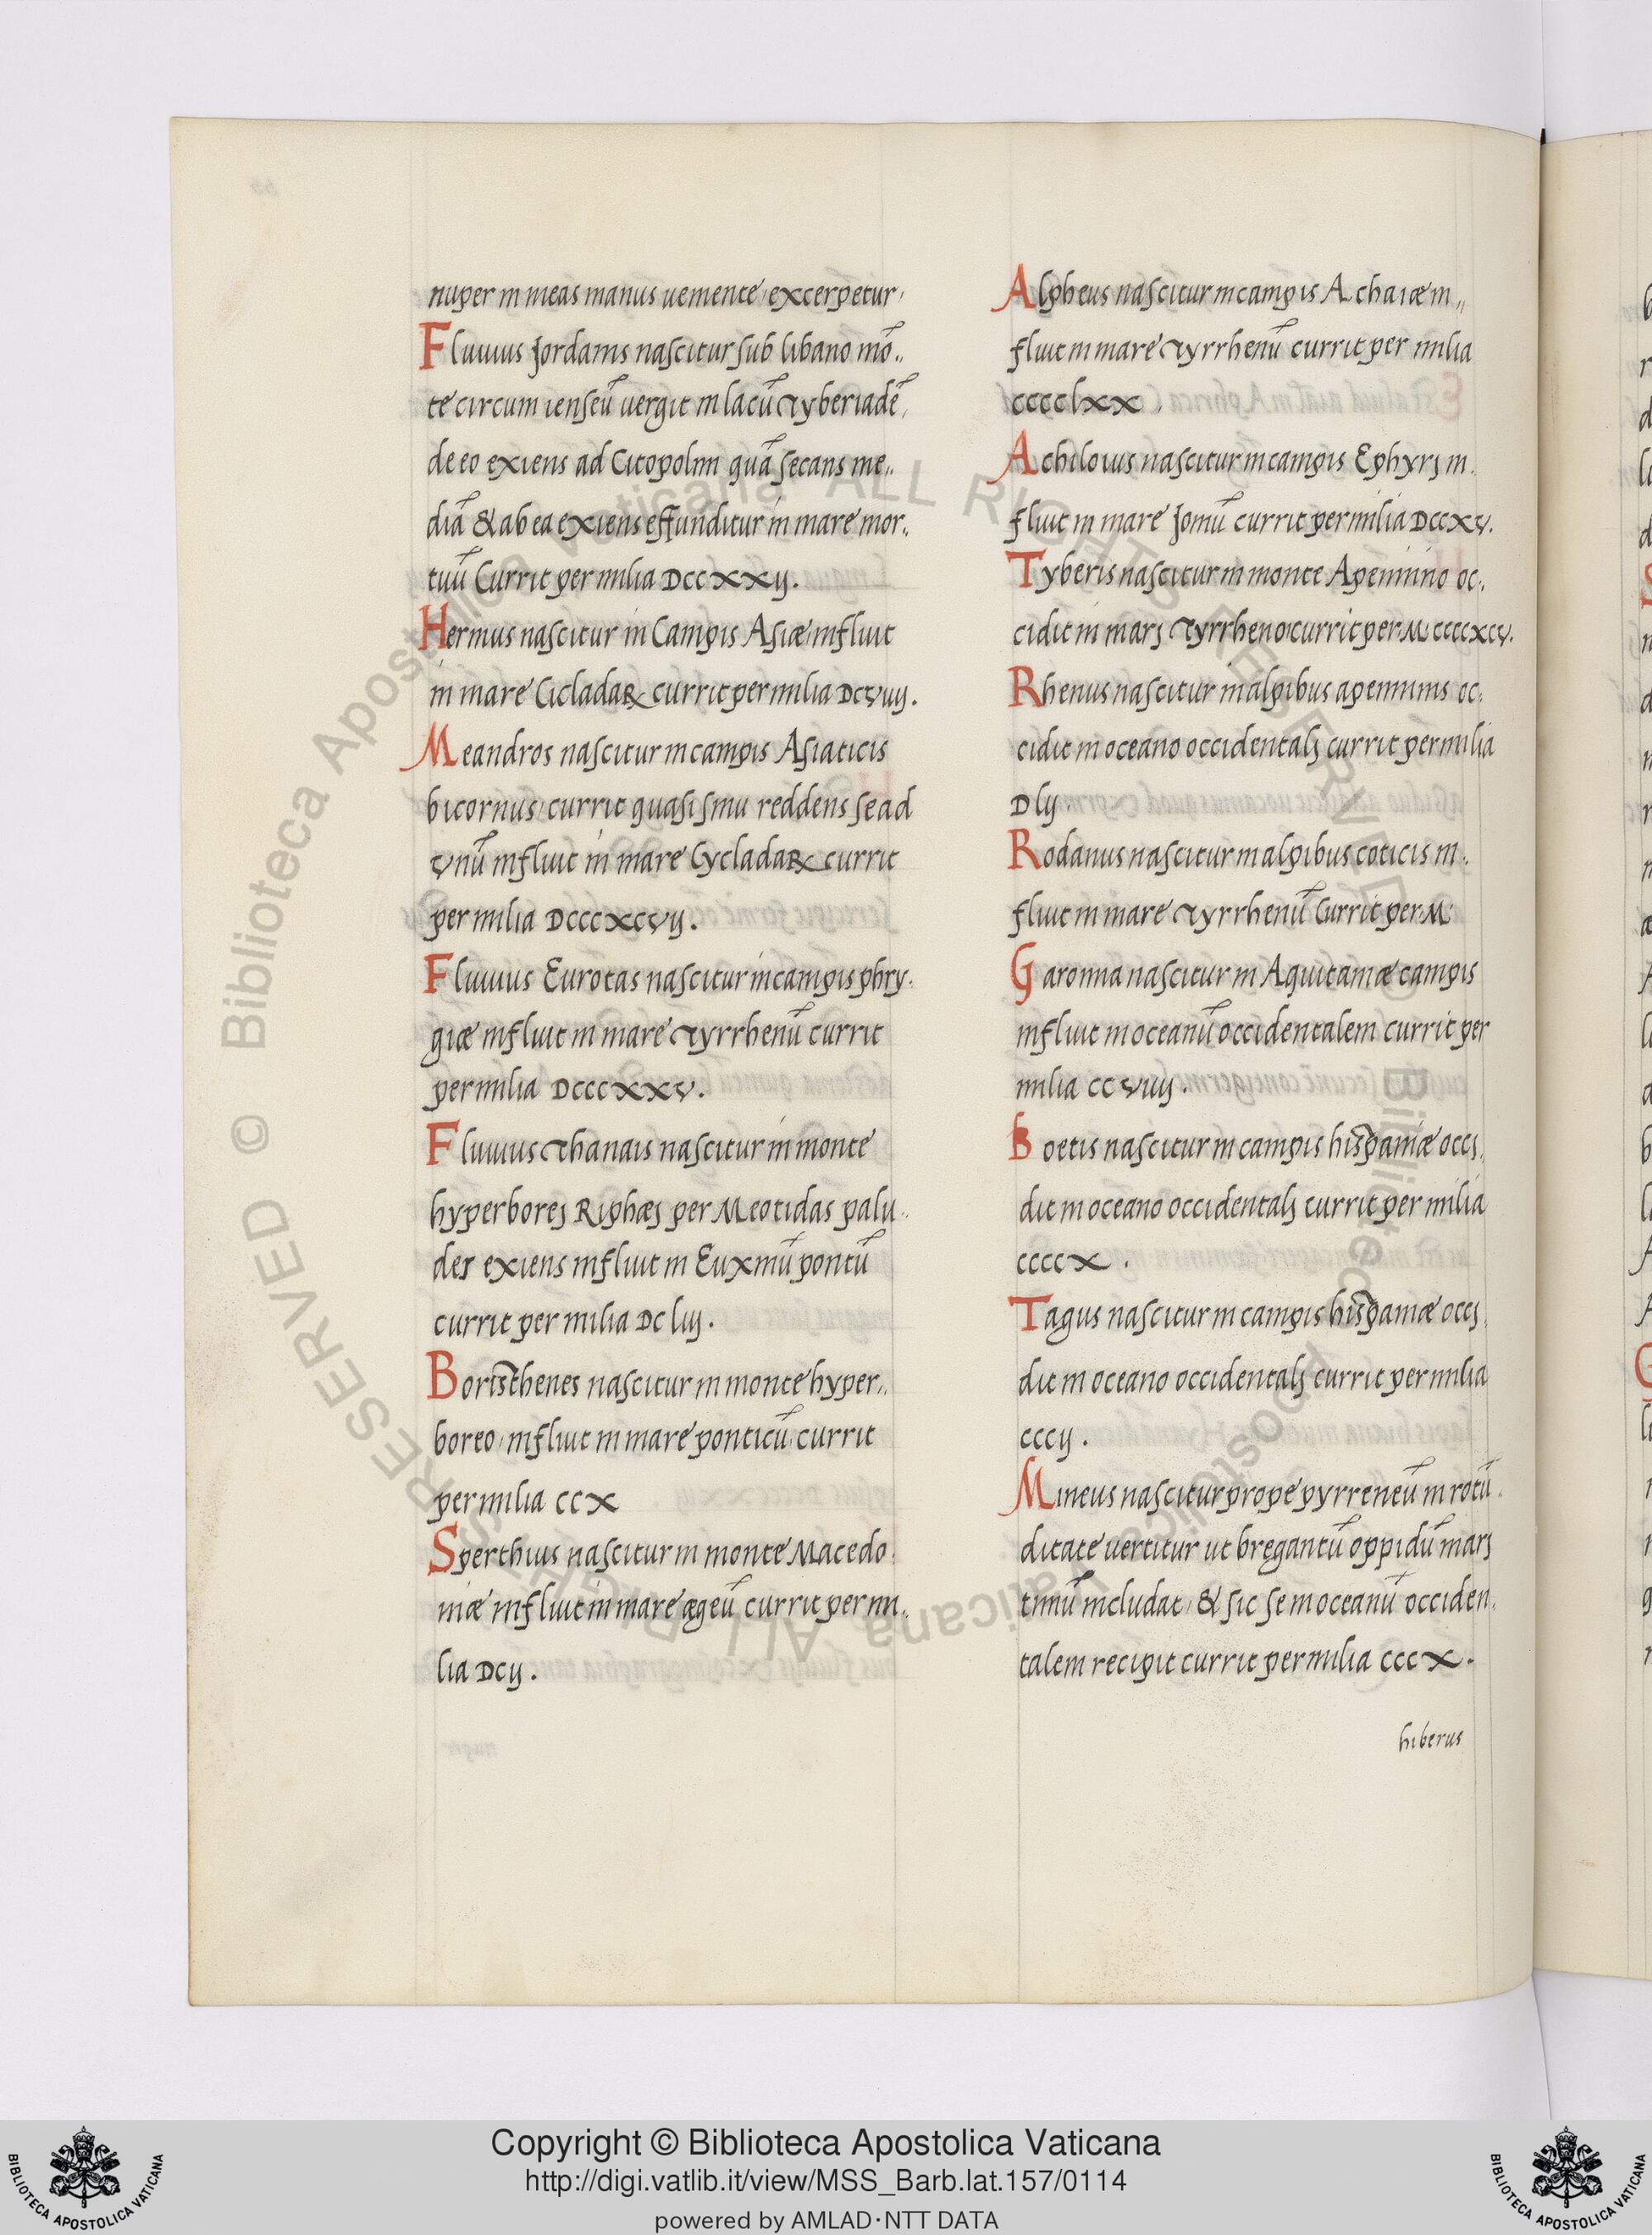 nuper in meas manus uemente excerpetur,
Fluuius Jordanis nascitur sub libano mõ,,
te circum ienseũ uergit in lacũ Tyberiadẽ,
de eo exiens ad Citopolim quã secans me,,
diã & ab ea exiens effunditur in mare mor,,
tuũ Currit per milia DCCXXIJ.
Hermus nascitur in Campis Asiæ, influit
in mare CicladaR currit per milia DCVIIIJ.
Meandros nascitur in campis Asiaticis
bicornus, currit quasi sinu reddens se ad
Vnũ influit in mare CycladaR currit
per milia DCCCXCVIJ.
Fluuius Eurotas nascitur in campis phry,
giæ influit in mare Tyrrhenũ currit
per milia DCCCXXV.
Fluuius Thanais nascitur in monte
hyperborej Riphæj per Meotidas palu,,
des exiens influit in Euxinũ pontũ
currit per milia DCLIIJ.
Boristhenes nascitur in monte hyper,,
boreo, influit in mare ponticũ, currit
per milia CCX
Sperthius nascitur in monte Macedo,
niæ influit in mare ægeũ currit per mi,,
lia DCIJ.
Alpheus nascitur in campis Achaiæ in,,
fluit in mare Tyrrhenũ currit per milia
CCCCLXX,
Achiloius nascitur in campis Ephyrj in,
fluit in mare Joniũ currit per milia DCCXV.
Tyberis nascitur in monte Apeninino oc,
cidit in marj Tyrrheno, currit per M CCCCXCV.
Rhenus nascitur in alpibus apeninis oc,
cidit in oceano occidentalj currit per milia
DLIJ.
Rodanus nascitur in alpibus coticis in,
fluit in mare Tyrrhenũ Currit per M
Garonna nascitur in Aquitaniæ campis
influit in oceanũ occidentalem currit per
milia CCVIIIJ.
Boetis nascitur in campis hispaniæ occj,
dit in oceano occidentalj currit per milia
CCCCX.
Tagus nascitur in campis hispaniæ occj,
dit in oceano occidentalj currit per milia
CCCIJ.
Mineus nascitur prope pyrreneũ in rotũ,
ditate uertitur ut bregantũ oppidũ marj
timũ includat, & sic se in oceanũ occiden,
talem recipit currit per milia CCCX.
hiberus
Copyright © Biblioteca Apostolica Vaticana
http://digi.vatlib.it/view/MSS_Barb.lat.157/0114
powered by AMLAD·NTT DATA
BIBLIOTECA APOSTOLICA VATICANA
BIBLIOTECA APOSTOLICA VATICANA
© Biblioteca Apostolica Vaticana ALL RIGHTS RESERVED
© Biblioteca Apostolica Vaticana ALL RIGHTS RESERVED